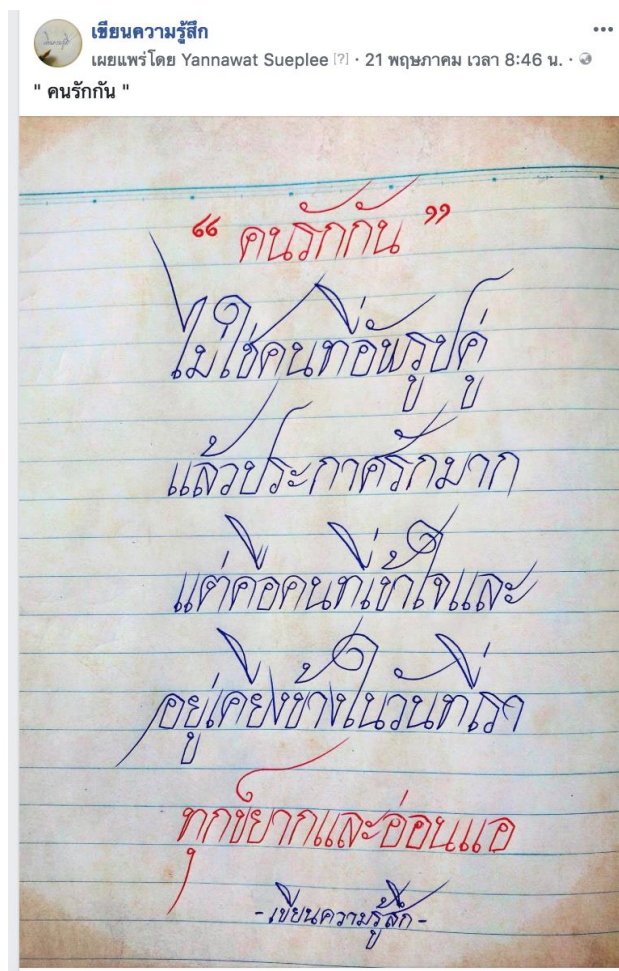 เขียนความรู้สึก
เผยแพร่โดย Yannawat Sueplee [?] · 21 พฤษภาคม เวลา 8:46 น. ·
" คนรักกัน "
“ คนรักกัน ”
ไม่ใช่คนที่อัพรูปคู่
แล้วประกาศรักมาก
แต่คือคนที่เข้าใจและ
อยู่เคียงข้างในวันที่เรา
ทุกข์ยากและอ่อนแอ
-เขียนความรู้สึก-